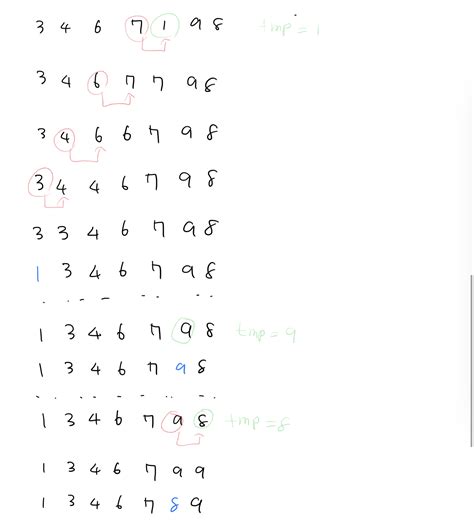 3 4 6 7 1 9 8 tmp = 1
3 4 6 7 7 9 8
3 4 6 6 7 9 8
3 4 4 6 7 9 8
3 3 4 6 7 9 8
1 3 4 6 7 9 8
1 3 4 6 7 9 8 tmp = 9
1 3 4 6 7 9 8
1 3 4 6 7 9 8 tmp = 8
1 3 4 6 7 9 9
1 3 4 6 7 8 9